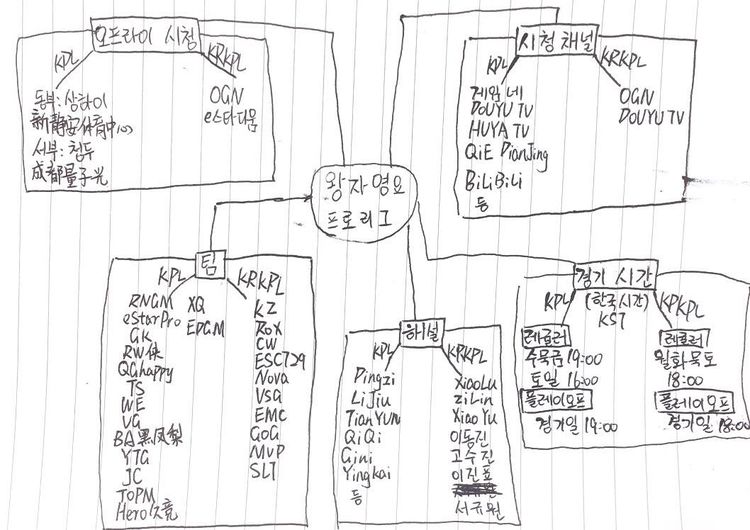 오프라이 시청
KPL
KRKPL
동부: 상하이
新静安体育中心
서부: 청두
成都量子光
OGN
e스타디움
시청 채널
KPL
KRKPL
게임 네
DOUYU TV
HUYA TV
QiE DianJing
BiLiBiLi
등
OGN
DOUYU TV
왕자영요
프로리그
팀
KPL
KRKPL
RNGM
eStarPro
GK
RW侠
QGhappy
TS
WE
VG
BA黑凤梨
YTG
JC
TOPM
Hero久竞
XQ
EDGM
KZ
ROX
CW
ESC729
Nova
VSG
EMC
GOG
MVP
SLT
해설
KPL
KRKPL
Pingzi
LiJiu
TianYUN
QiQi
Gini
Yingkai
등
XiaoLu
ziLin
XiaoYu
이동진
고수진
이진표
서규원
경기 시간
(한국시간)
KST
KPL
KPKPL
레귤러
수목금 19:00
토일 16:00
플레이오프
경기일 19:00
레귤러
월화목토
18:00
플레이오프
경기일 18:00